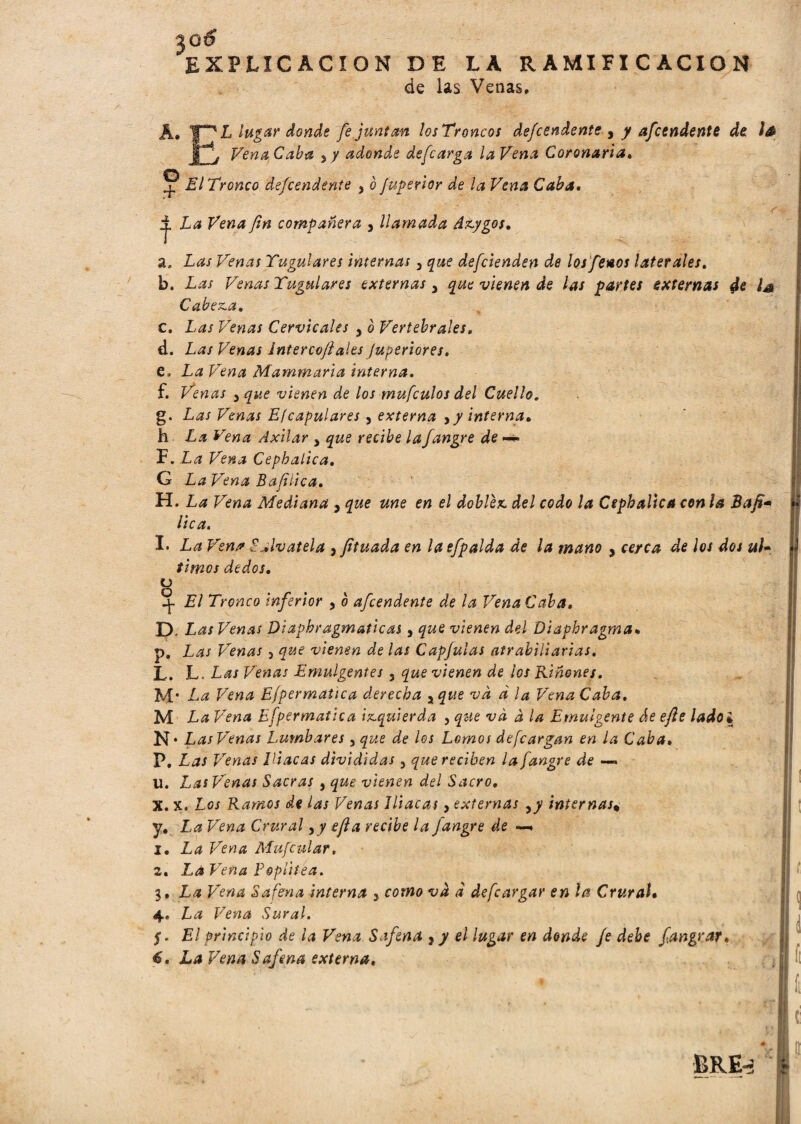 306
EXPLICACION DE LA RAMIFICACION
de las Venas.
A. EL lugar donde ſe juntan los Troncos deſcendente, y aſcendente de la
Vena Caba, y adonde deſcarga la Vena Coronaria.
El Tronco deſcendente, ò ſuperior de la Vena Caba.
La Vena ſin compañera, llamada Azygos.
a. Las Venas Yugulares internas, que deſcienden de los ſenos laterales.
b. Las Venas Yugulares externas, que vienen de las partes externas de la
Cabeza.
c. Las Venas Cervicales, ò Vertebrales.
d. Las Venas Intercoſtales ſuperiores.
e. La Vena Mammaria interna.
f. Venas, que vienen de los muſculos del Cuello.
g. Las Venas Eſcapulares, externa, y interna.
h La Vena Axilar, que recibe la ſangre de —
F. La Vena Cephalica.
G La Vena Baſilica.
H. La Vena Mediana, que une en el doblèz del codo la Cephalica con la Baſi-
lica.
I. La Vena Salvatela, ſituada en la eſpalda de la mano, cerca de los dos ul-
timos dedos.
El Tronco inferior, ò aſcendente de la Vena Caba.
D. Las Venas Diaphragmaticas, que vienen del Diaphragma.
p. Las Venas, que vienen de las Capſulas atrabiliarias.
L. L. Las Venas Emulgentes, que vienen de los Riñones.
M. La Vena Eſpermatica derecha, que và à la Vena Caba.
M La Vena Eſpermatica izquierda, que và à la Emulgente de eſte lado.
N. Las Venas Lumbares, que de los Lomos deſcargan en la Caba.
P. Las Venas Iliacas divididas, que reciben la ſangre de —
u. Las Venas Sacras, que vienen del Sacro.
x. x. Los Ramos de las Venas Iliacas, externas, y internas.
y. La Vena Crural, y eſta recibe la ſangre de —
1. La Vena Muſcular.
2. La Vena Poplitea.
3. La Vena Safena interna, como và à deſcargar en la Crural.
4. La Vena Sural.
5. El principio de la Vena Safena, y el lugar en donde ſe debe ſangrar.
6. La Vena Safena externa.
BRE-